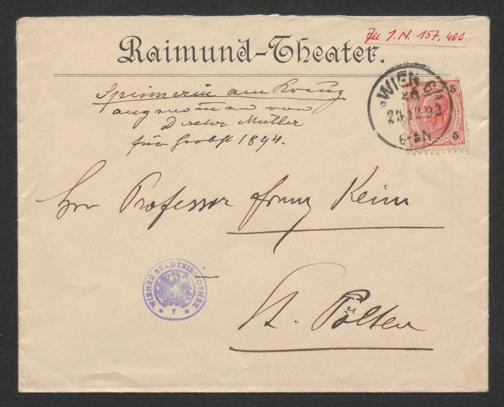 Zu I.N. 157.400
Raimund-Theater.
Spinnerin am Kreuz
angenommen von
Direktor Müller
für Herbst 1894.
WIEN
23 12 93
6-N
5
5
5
Hrn Professor Franz Keim
WIENER STADTBIBLIOTHEK
St. Pölten